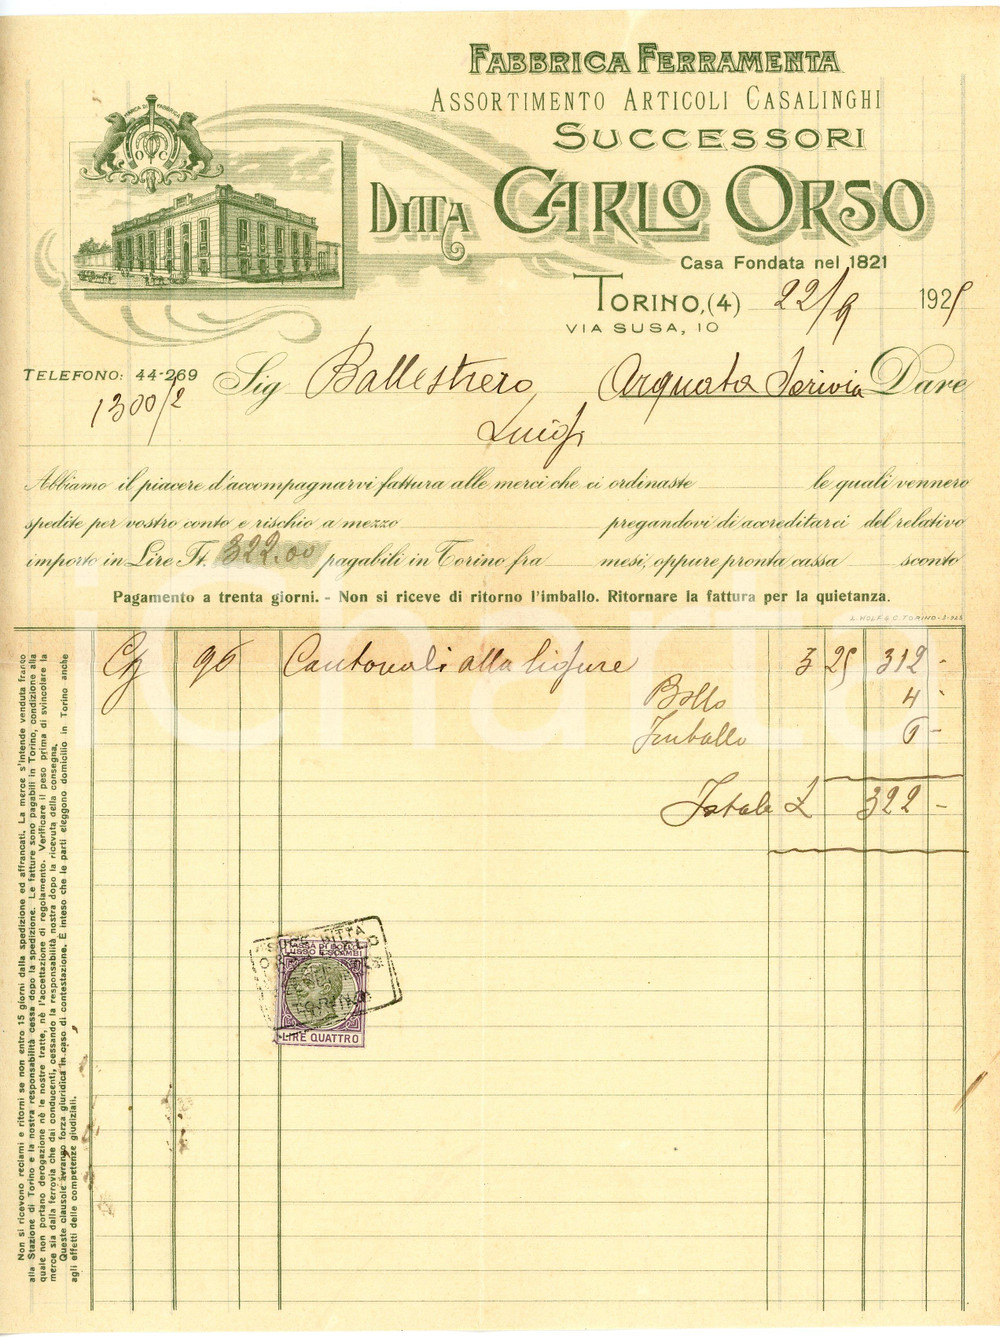 FABBRICA FERRAMENTA
ASSORTIMENTO ARTICOLI CASALINGHI
SUCCESSORI
DITTA CARLO ORSO
Casa Fondata nel 1821
MARCA DI FABBRICA
O C
TORINO, (4) 22/9 1925
VIA SUSA, 10
TELEFONO: 44-269
1300/2
Sig Ballestrero Arquata Scrivia Dare
Luigi
Abbiamo il piacere d'accompagnarvi fattura alle merci che ci ordinaste le quali vennero
spedite per vostro conto e rischio a mezzo pregandovi di accreditarci del relativo
importo in Lire It. 322.00 pagabili in Torino fra mesi, oppure pronta cassa sconto
Pagamento a trenta giorni. - Non si riceve di ritorno l'imballo. Ritornare la fattura per la quietanza.
Cg 96 Cantonali alla ligure 3 25 312 -
Bollo 4 -
Imballo 6 -
Totale L 322 -
SUCC. DITTA
CARLO
TORINO
TASSA DI BOLLO
LUSSO E SCAMBI
LIRE QUATTRO
Non si ricevono reclami e ritorni se non entro 15 giorni dalla spedizione ed affrancati. La merce s'intende venduta franco
alla Stazione di Torino e la nostra responsabilità cessa dopo la spedizione. Le fatture sono pagabili in Torino, condizione alla
quale non portano derogazione nè le nostre tratte, nè l'accettazione di regolamento. Verificare il peso prima di svincolare la
merce sia dalla ferrovia che dai conducenti, cessando la responsabilità nostra dopo la ricevuta della consegna.
Queste clausole avranno forza giuridica in caso di contestazione. È inteso che le parti eleggono domicilio in Torino anche
agli effetti delle competenze giudiziali.
iCharta